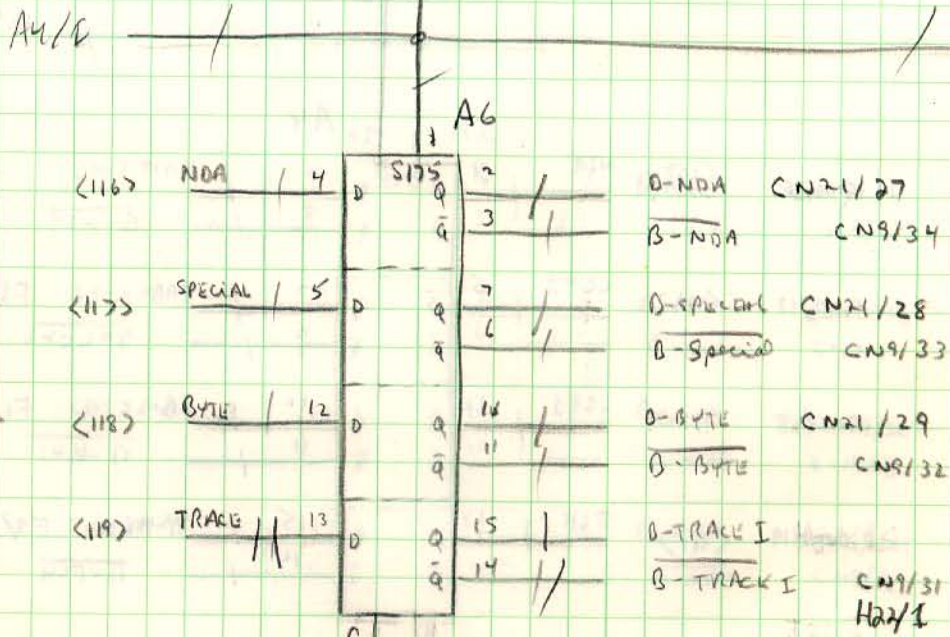 A4/
A6
1
<116> NDA 4 D S175 Q 2 B-NDA CN21/27
Q̅ 3 B-NDA CN9/34
<117> SPECIAL 5 D Q 7 B-SPECIAL CN21/28
Q̅ 6 B-Special CN9/33
<118> BYTE 12 D Q B-BYTE CN21/29
Q̅ 11 B-BYTE CN9/32
<119> TRACE 13 D Q 15 B-TRACE I
Q̅ 14 B-TRACE I CN9/31
H22/1